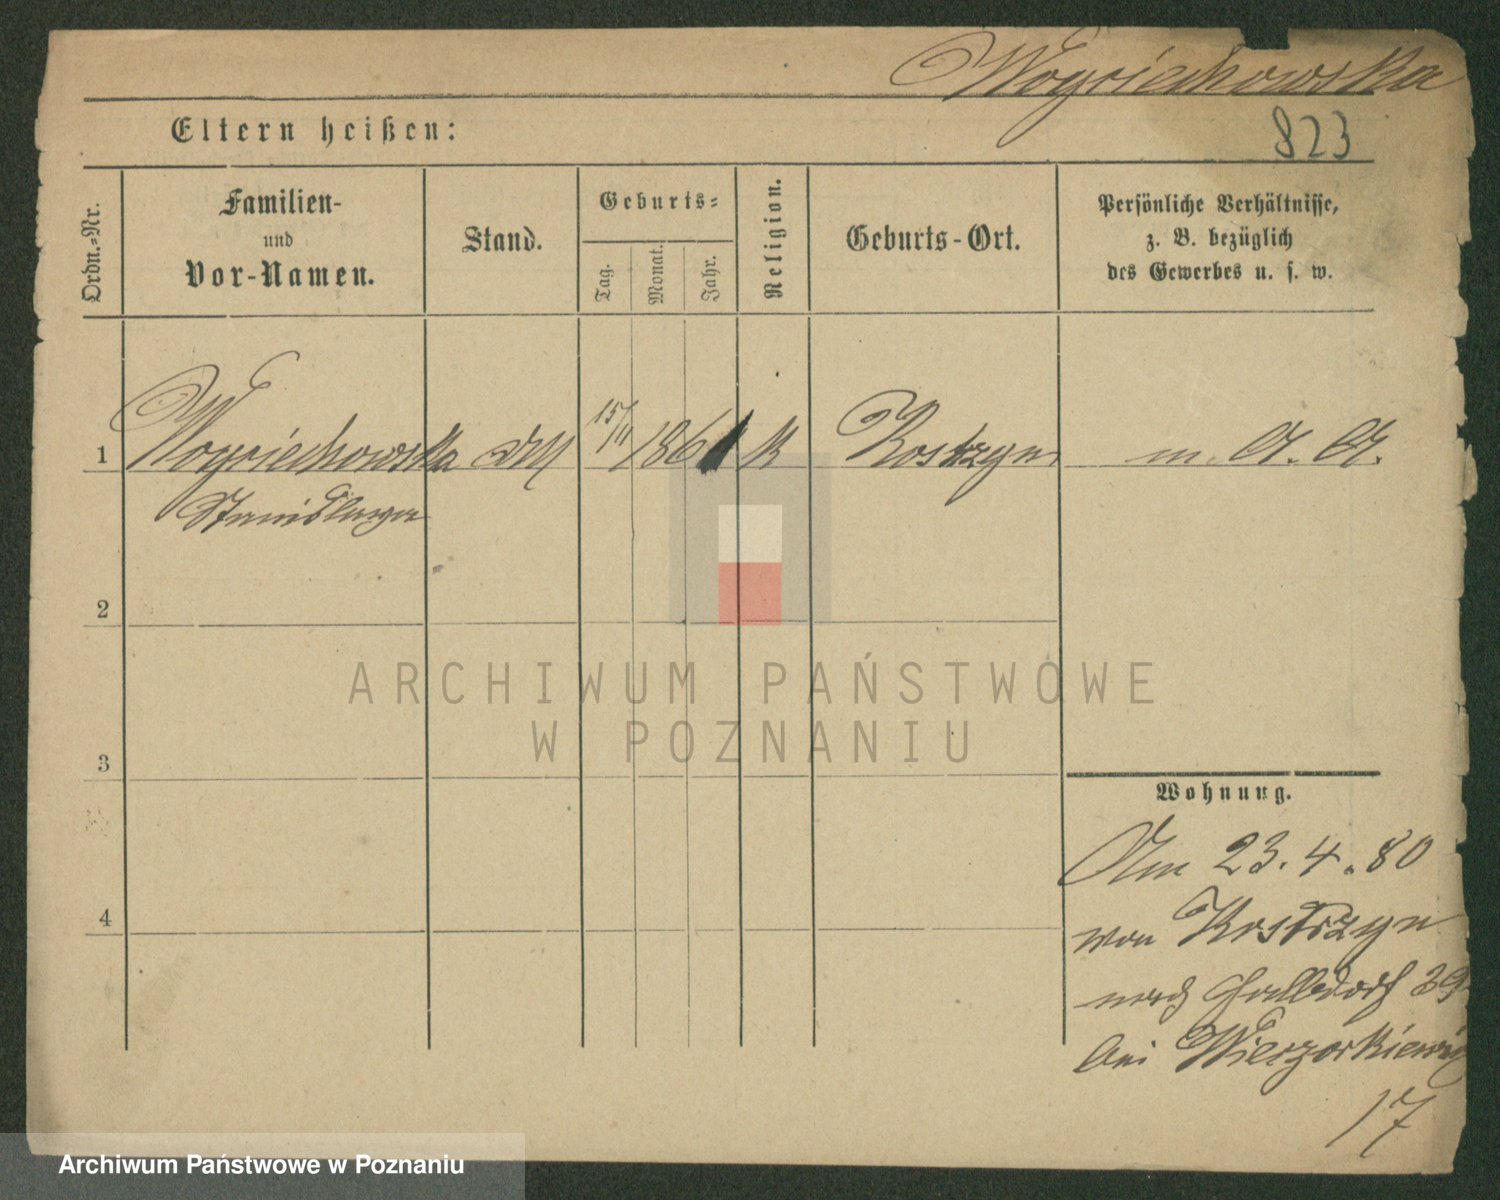 Woyciechowska
823
Eltern heißen:
Ordn.-Nr.
Familien-
und
Vor-Namen.
Stand.
Geburts-
Tag.
Monat.
Jahr.
Religion.
Geburts-Ort.
Persönliche Verhältnisse,
z. B. bezüglich
des Gewerbes u. s. w.
1
Woyciechowska
15/11 186
K
Kostrzyn
m. A. A.
Stanislawa
2
3
4
Wohnung.
Am 23.4.80
von Kostrzyn
nach Halldorf 39
bei
17
ARCHIWUM PAŃSTWOWE
W POZNANIU
Archiwum Państwowe w Poznaniu